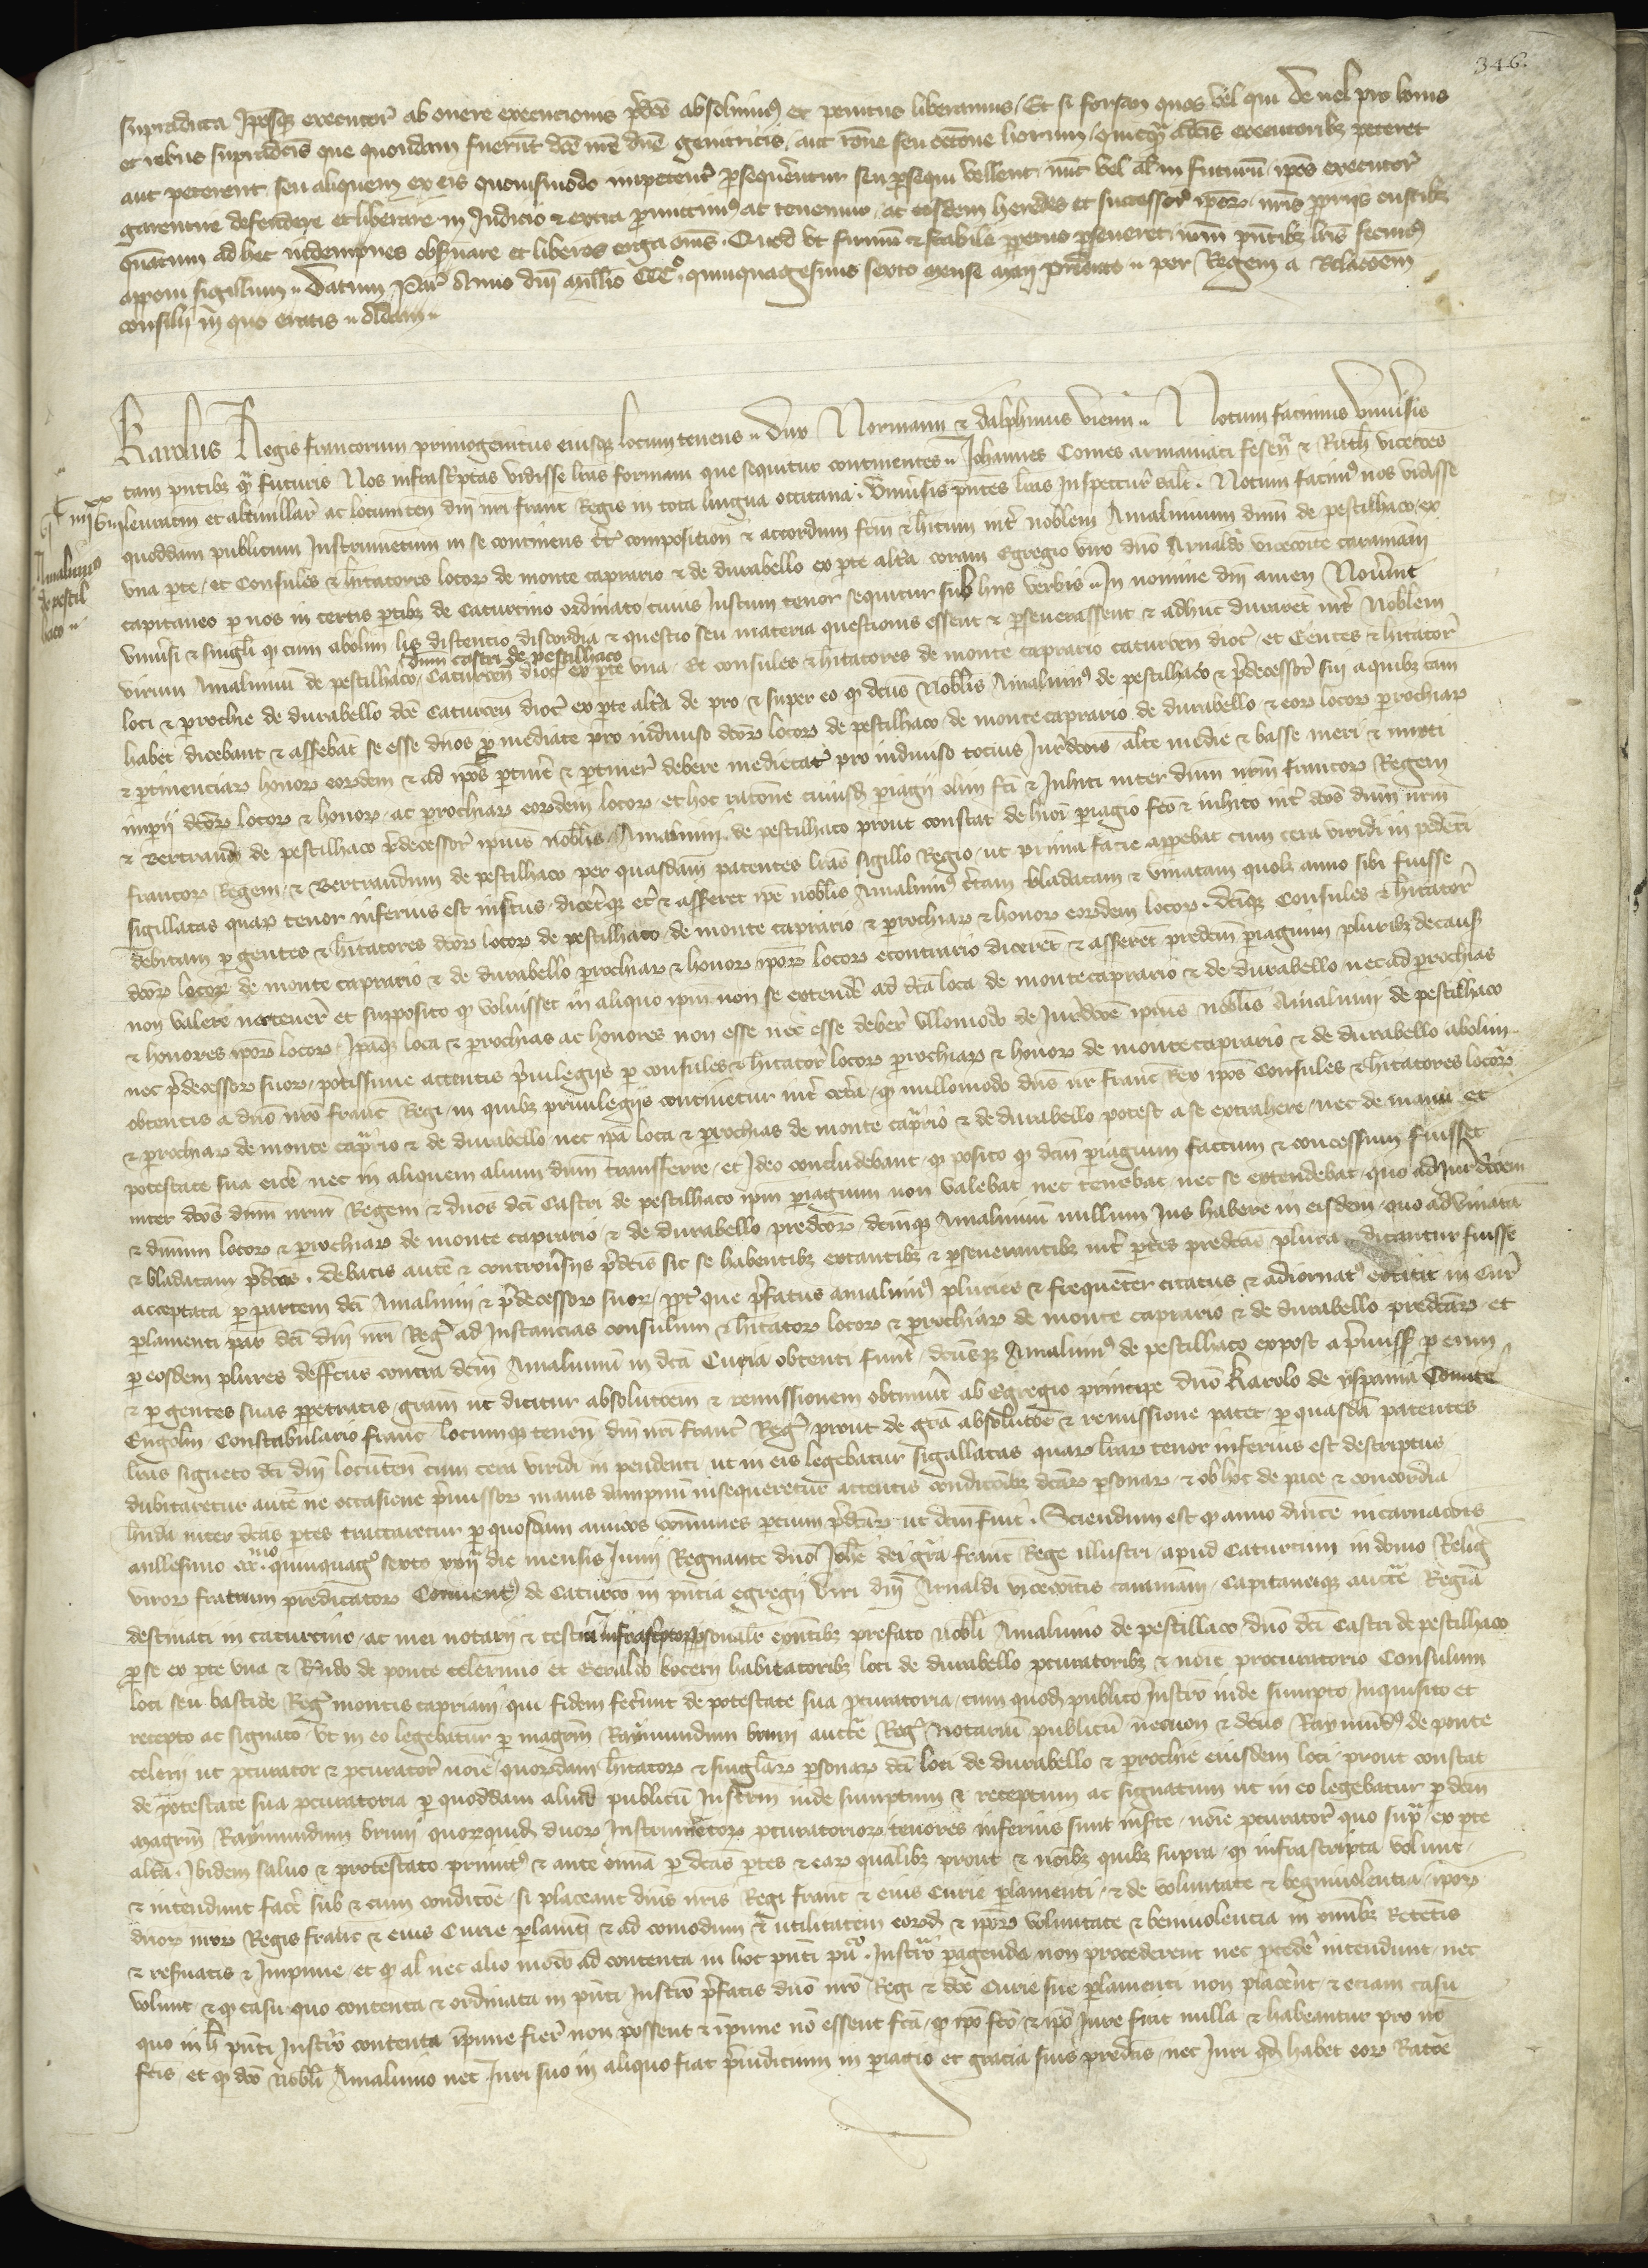 346.
supradicta Ipsosque executor ab onere execucionis pdce absolvimus et penitus liberamus / Et si forsan quos vel qui de vel pro bonis
et rebus supradictis que quondam fuerunt dce nre dne genitricis / aut racone seu occone horum / quicquam dictis executoribz peteret
aut peterent seu aliquem ex eis quovismodo impeterent psequerentur seu psequi vellent / nunc vel al in futurum / ipos executor
garentire defendere et liberare in Judicio & extra promittimus ac tenemur / ac eosdem heredes et successor ipor nris propriis custibz
quantum ad hec indempnes obsvare et liberos erga omes. Quod ut firmum & stabile ppetuo pseveret nrm pntibz lris fecimus
apponi sigillum .. Datum Par Anno dni millio CCC° quinquagesimo sexto mense maii predicto .. per Regem a Relacoem
consilii in quo eratis ..
Karolus Regis francorum primogenitus eiusque locumtenens .. dux Normann & dalphinus vienn .. Notum facimus univsis
tam pntibz qm futuris Nos infrascriptas vidisse lras formam que sequitur continentes .. Johannes Comes armaniaci fesen & Ruth vicecoes
leomanie et altivillar ac locumten dni nri franc Regis in tota lingua occitana . Univsis pntes lras inspectur salt . Notum facimus nos vidisse
quoddam publicum Instrumentum in se continens composition & accordum fcm & hitum int noblem Amalvinum dnm de pestilhaco / ex
una pte / et Consules & hitatores locor de monte caprario & de durabello ex pte alta coram Egregio viro dno Arnaldo vicecoite caramanni
capitaneo p nos in certis ptibz de Caturcino ordinato / cuius Instrum tenor sequitur sub hiis verbis .. In nomine dni amen Noverint
univsi & singli q cum abolim lis distencio discordia & questio seu materia questionis essent & pseverassent & adhuc duraret int Noblem
dnm castri de pestilhaco
virum Amalvinum de pestilhaco / Caturcen dioc ex pte una / Et consules & hitatores de monte caprario caturcen dioc / et Gentes & hitator
loci & prochie de durabello dce Caturcen dioc ex pte alta de pro & super eo q dcus Noblis Amalvinus de pestilhaco & predecessor sui a quibz cam
habet dicebant & asserebat se esse dnos p mediate pro indiviso dcor locor de pestilhaco de monte caprario de durabello & eor locor prochiar
& ptinenciar honor eordem & ad ipos ptinere & ptiner debere medietate pro indiviso tocius Jurdcois alte medie & basse meri & mixti
impii dcor locor & honor ac prochiar eordem locor / et hoc racone cuiusd pariagii olim fci & Inhiti inter dnm nrm francor Regem
& Bertrand de pestilhaco predecessor ipius noblis Amalvini de pestilhaco prout constat de huoi pariagio fco & inhito int dcos dnm nrm
francor Regem / & Bertrandum de pestilhaco per quasdam patentes lras sigillo Regio / ut prima facie apparebat cum cera viridi in pendenti
sigillatas quar tenor inferius est insertus / diceretque & assereret ipe noblis Amalvinus ctam bladatam & vinatam quolz anno sibi fuisse
debitam p gentes & hitatores dcor locor de pestilhaco / de monte caprario & prochiar & honor eordem locor . dcique Consules & hitator
dcor locor de monte caprario & de durabello prochiar & honor ipor locor econtrario dicerent & assererent predcm pariagium pluribz de causis
non valere nec tener et supposito q voluisset in aliquo ipm non se extender ad dca loca de monte caprario & de durabello nec ad prochias
& honores ipor locor / Ipaque loca & prochias ac honores non esse nec esse deber ullomodo de Jurdcoe ipius noblis Amalvini de pestilhaco
nec predecessor suor / potissime attentis privilegiis p consules & hitator locor prochiar & honor de monte caprario & de durabello abolim
obtentis a dno nro franc Regi / in quibz privilegiis continetur int cetera / q nullomodo dns nr franc Rex ipos Consules & hitatores locor
& prochiar de monte caprario & de durabello nec ipa loca & prochias de monte caprario & de durabello potest a se extrahere / nec de manu et
potestate sua eicere / nec in aliquem alium dnm transferre / et Ideo concludebant / q posito q dcm pariagium factum & concessum fuisset
inter dcos dnm nrm Regem & dnos dci Castri de pestilhaco ipm pariagium non valebat nec tenebat / nec se extendebat quo ad Jurdcoem
& dnium locor & prochiar de monte caprario & de durabello predcor / dcumque Amalvinum nullum Jus habere in eisdem / quo ad vinatam
& bladatam predcas . Debatis autem & controversiis predcis sic se habentibz extantibz & pseverantibz int ptes predcas plura dicantur fuisse
acceptata p partem dci Amalvini & predecessor suor / propter que prefatus amalvinus pluries & frequenter citatus & adiornatus extitit in Cur
plamenti par dci dni nri Reg ad Instancias consulum & hitator locor & prochiar de monte caprario & de durabello predcar / et
p eosdem plures deffectus contra dcm Amalvinum in dca Curia obtenti fuer / dcusque Amalvinus de pestilhaco expost a pmissis p eum
& p gentes suas ppetratis / gram ut dicitur absolucoem & remissionem obtinuit ab Egregio principe dno Karolo de yspania Comite
Engolism Constabulario franc locumque tenen dni nri franc Reg / prout de gra absolucoe & remissione patet / p quasdam patentes
lras signeto dci dni locuten cum cera viridi in pendenti ut in eis legebatur sigillatas quar lrar tenor inferius est descriptus
dubitaretur autem ne occasione pmissor maius dampnum insequeretur attentis condicoibz dcar psonar / & ob hoc de pace & concordia
hnda inter dcas ptes tractaretur p quosdam amicos communes pcium predcar ut dcm fuit . Sciendum est q anno dnice incarnacois
millesimo ccc.mo quinquag° sexto xvii die mensis Junii Regnante dno Johe dei gra franc Rege illustri / apud Caturcum in domo Relig
viror fratrum predicator Convent de Caturco in pncia egregii viri dni Arnaldi vicecoitis caramanni / Capitaneique auctte Regia
destinati in caturcino / ac mei notarii & testium infrascptor psonalr exntibz prefato nobli Amalvino de pestillaco / dno dci Castri de pestilhaco
p se ex pte una & Rndo de ponte celermio et Geraldo kocerii habitatoribz loci de durabello pcuratoribz & noie procuratorio Consulum
loci seu bastide Reg montis caprarii / qui fidem fecerunt de potestate sua pcuratoria / cum quod publico Instro inde sumpto Inquisito et
recepto ac signato / ut in eo legebatur p magrm Raymundum bruni auctte Reg Notarium publicum necnon & dcus Raymundus de ponte
celerii ut pcurator & pcurator noie quordam hitator & singlar psonar dci loci de durabello & prochie eiusdem loci / prout constat
de potestate sua pcuratoria p quoddam aliud publicum Instrm inde sumptum & receptum ac signatum ut in eo legebatur p dcm
magrm Raymundum bruni / quorquid duor Instrumentor pcuratorior tenores inferius sunt inserte / noie pcurator quo supra / ex pte
alta . Ibidem salvo & protestato primitus & ante omnia p dcas ptes & ear qualibz prout & noibz quibz supra / q infrascripta volunt /
& intendunt facer sub & cum condicoe / si placeant dnis nris Regi franc & eius Curie plamenti / & de voluntate & begnivolentia ipor
dnor nror Regis franc & eius Curie plamenti & ad comodum & utilitatem eord & ipor voluntate & benivolencia in omibz Retentis
& reservatis & Impune / et q al nec alio modo ad contenta in hoc pnti pu°. Instro pagenda non procederent nec pceder intendunt / nec
volunt / & q casu quo contenta & ordinata in pnti Instro prefatis dno nro Regi & dce Curie sue plamenti non placerent / & eciam casu
quo in h pnti Instro contenta impune fier non possent & impune no essent fca / q ipo fco & ipo Jure sint nulla & habeantur pro no
fcis / et q dco nobli Amalvino nec Juri suo in aliquo fiat pjudicium in pariagio et gracia suis predcis / nec Juri qd habet eor Racoe
Amalvinus
de pestil
haco ..